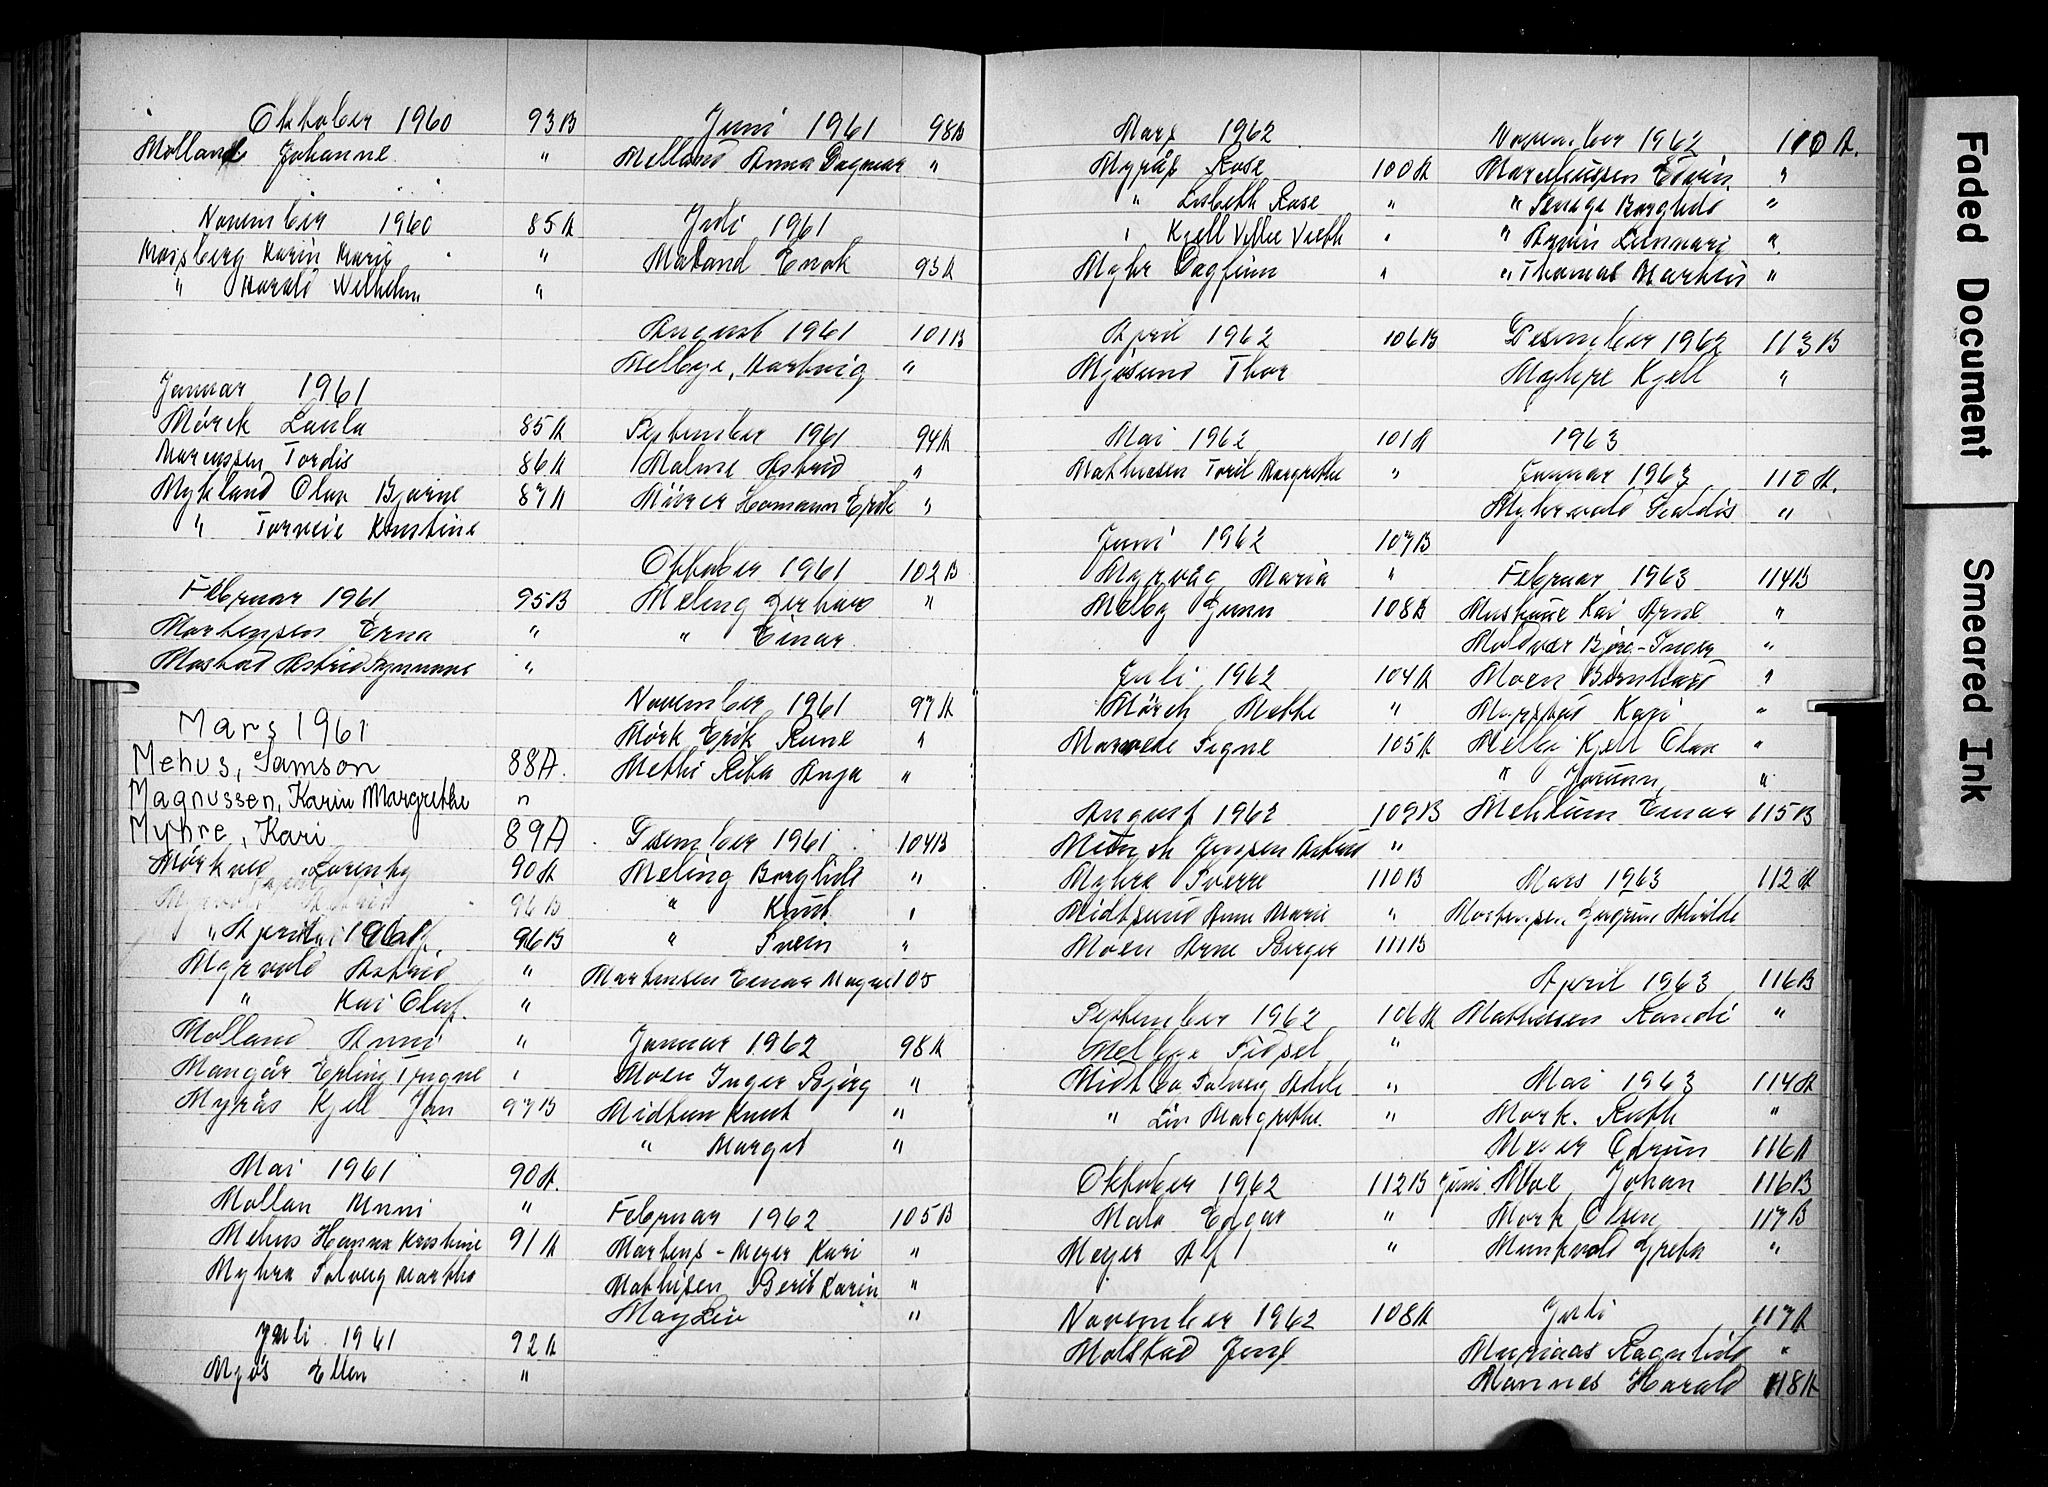 Oktober 1960 93B
Molland Johanne "
November 1960 85A
Moisberg Karin Marie "
" Harald Wilhelm "
Januar 1961
Mörck Laula 85A
Marenssen Tordis 86A
Mykland Olav Bjarne 87A
" Torveie Kristine
Februar 1961 95B
Mortensen Erna "
Mostad Astrid Synnøve "
Mars 1961
Mehus, Samson 88A.
Magnussen, Karin Margrethe "
Myhre, Kari 89A
Mörkved Lorentz 90A
96B
April 1961. 96B
Myrvold Astrid "
" Kai Oluf. "
Molland Anni "
Mangår Erling Trygve "
Myrås Kjell Jan 97B
Mai 1961 90A.
Mollan Unni "
Mehus Hanna Kristine 91A
Myhra Solveig Martha
Juli 1961 92A
Mjøs Ellen "
Juni 1961 98B
Melland Anna Dagmar "
Juli 1961
Maland Enok 93A
August 1961 101B
Melbye, Hartvig "
September 1961 94A
Malme Astrid "
Meyer Homann Erik "
Oktober 1961 102B
Meling Gerhard "
" Einar
November 1961 97A
Mörk Erik Rune "
Methi Rita Anja "
Desember 1961 104B
Meling Borghild "
" Knut "
" Svein "
Martinsen Einar Magne 105
Januar 1962 98A
Moen Inger Bjørg "
Midtun Knut "
" Margot "
Februar 1962 105B
Martens-Meyer Kari "
Mathisen Berit Karin "
May Liv "
Mars 1962
Myrås Rose 100A
" Lisbeth Rose "
" Kjell Villie Vieth "
Myhr Dagfinn "
April 1962 106B
Mjösund Thor
Mai 1962 101A
Mathiesen Toril Margrethe "
Juni 1962 107B
Myrvåg Maria "
Melby Gunn 108B
Juli 1962 104A
Mörch Mette "
Signe 105A
August 1962 109B
Münch Jenssen Astrid "
Myhra Sverre 110B
Midtsund Anne Marie "
Moen Arne Birger 111B
September 1962 106A
Melbye Sidsel "
Midtbø Solveig Adele "
" Liv Margrethe. "
Oktober 1962 112B
Malo Edgar "
Meyer Alf "
November 1962 108A
Molstad Jens
November 1962 110A.
Markhussen Edvin "
" Senega Borghild "
" Arvin Lennart "
" Thomas Martin "
Desember 1962 113B
Myhre Kjell "
1963
Januar 1963 110A.
Myhrvold Svaldis "
Februar 1963 114B
Kai Arne "
Moldvær Björg-Inger "
Moen Bernhard "
Myrstad Kari "
Melby Kjell Olav "
" Jorunn "
Mehlum Einar 115B
Mars 1963 112A
Mortensen, Gudrun Alvilde
April 1963 116B
Mathisen Randi "
Mai 1963 114A
Mork. Ruth "
Meyer Odrun 116A
Juni Moe Johan 116B
Mork Olsen 117B
Munkvold Grete "
Juli 117A
Murinaas Ragnhild "
Mannes Harald 118A
Faded Document
Smeared Ink